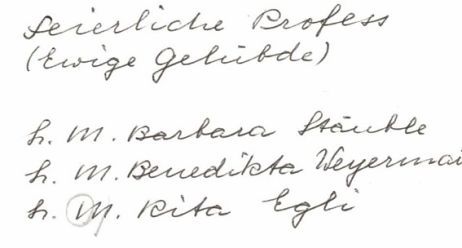 Feierliche Profess
(Ewige Gelübde)
Sr. M. Barbara Stäuble
Sr. M. Benedikta Weyerma
Sr. M. Rita Egli